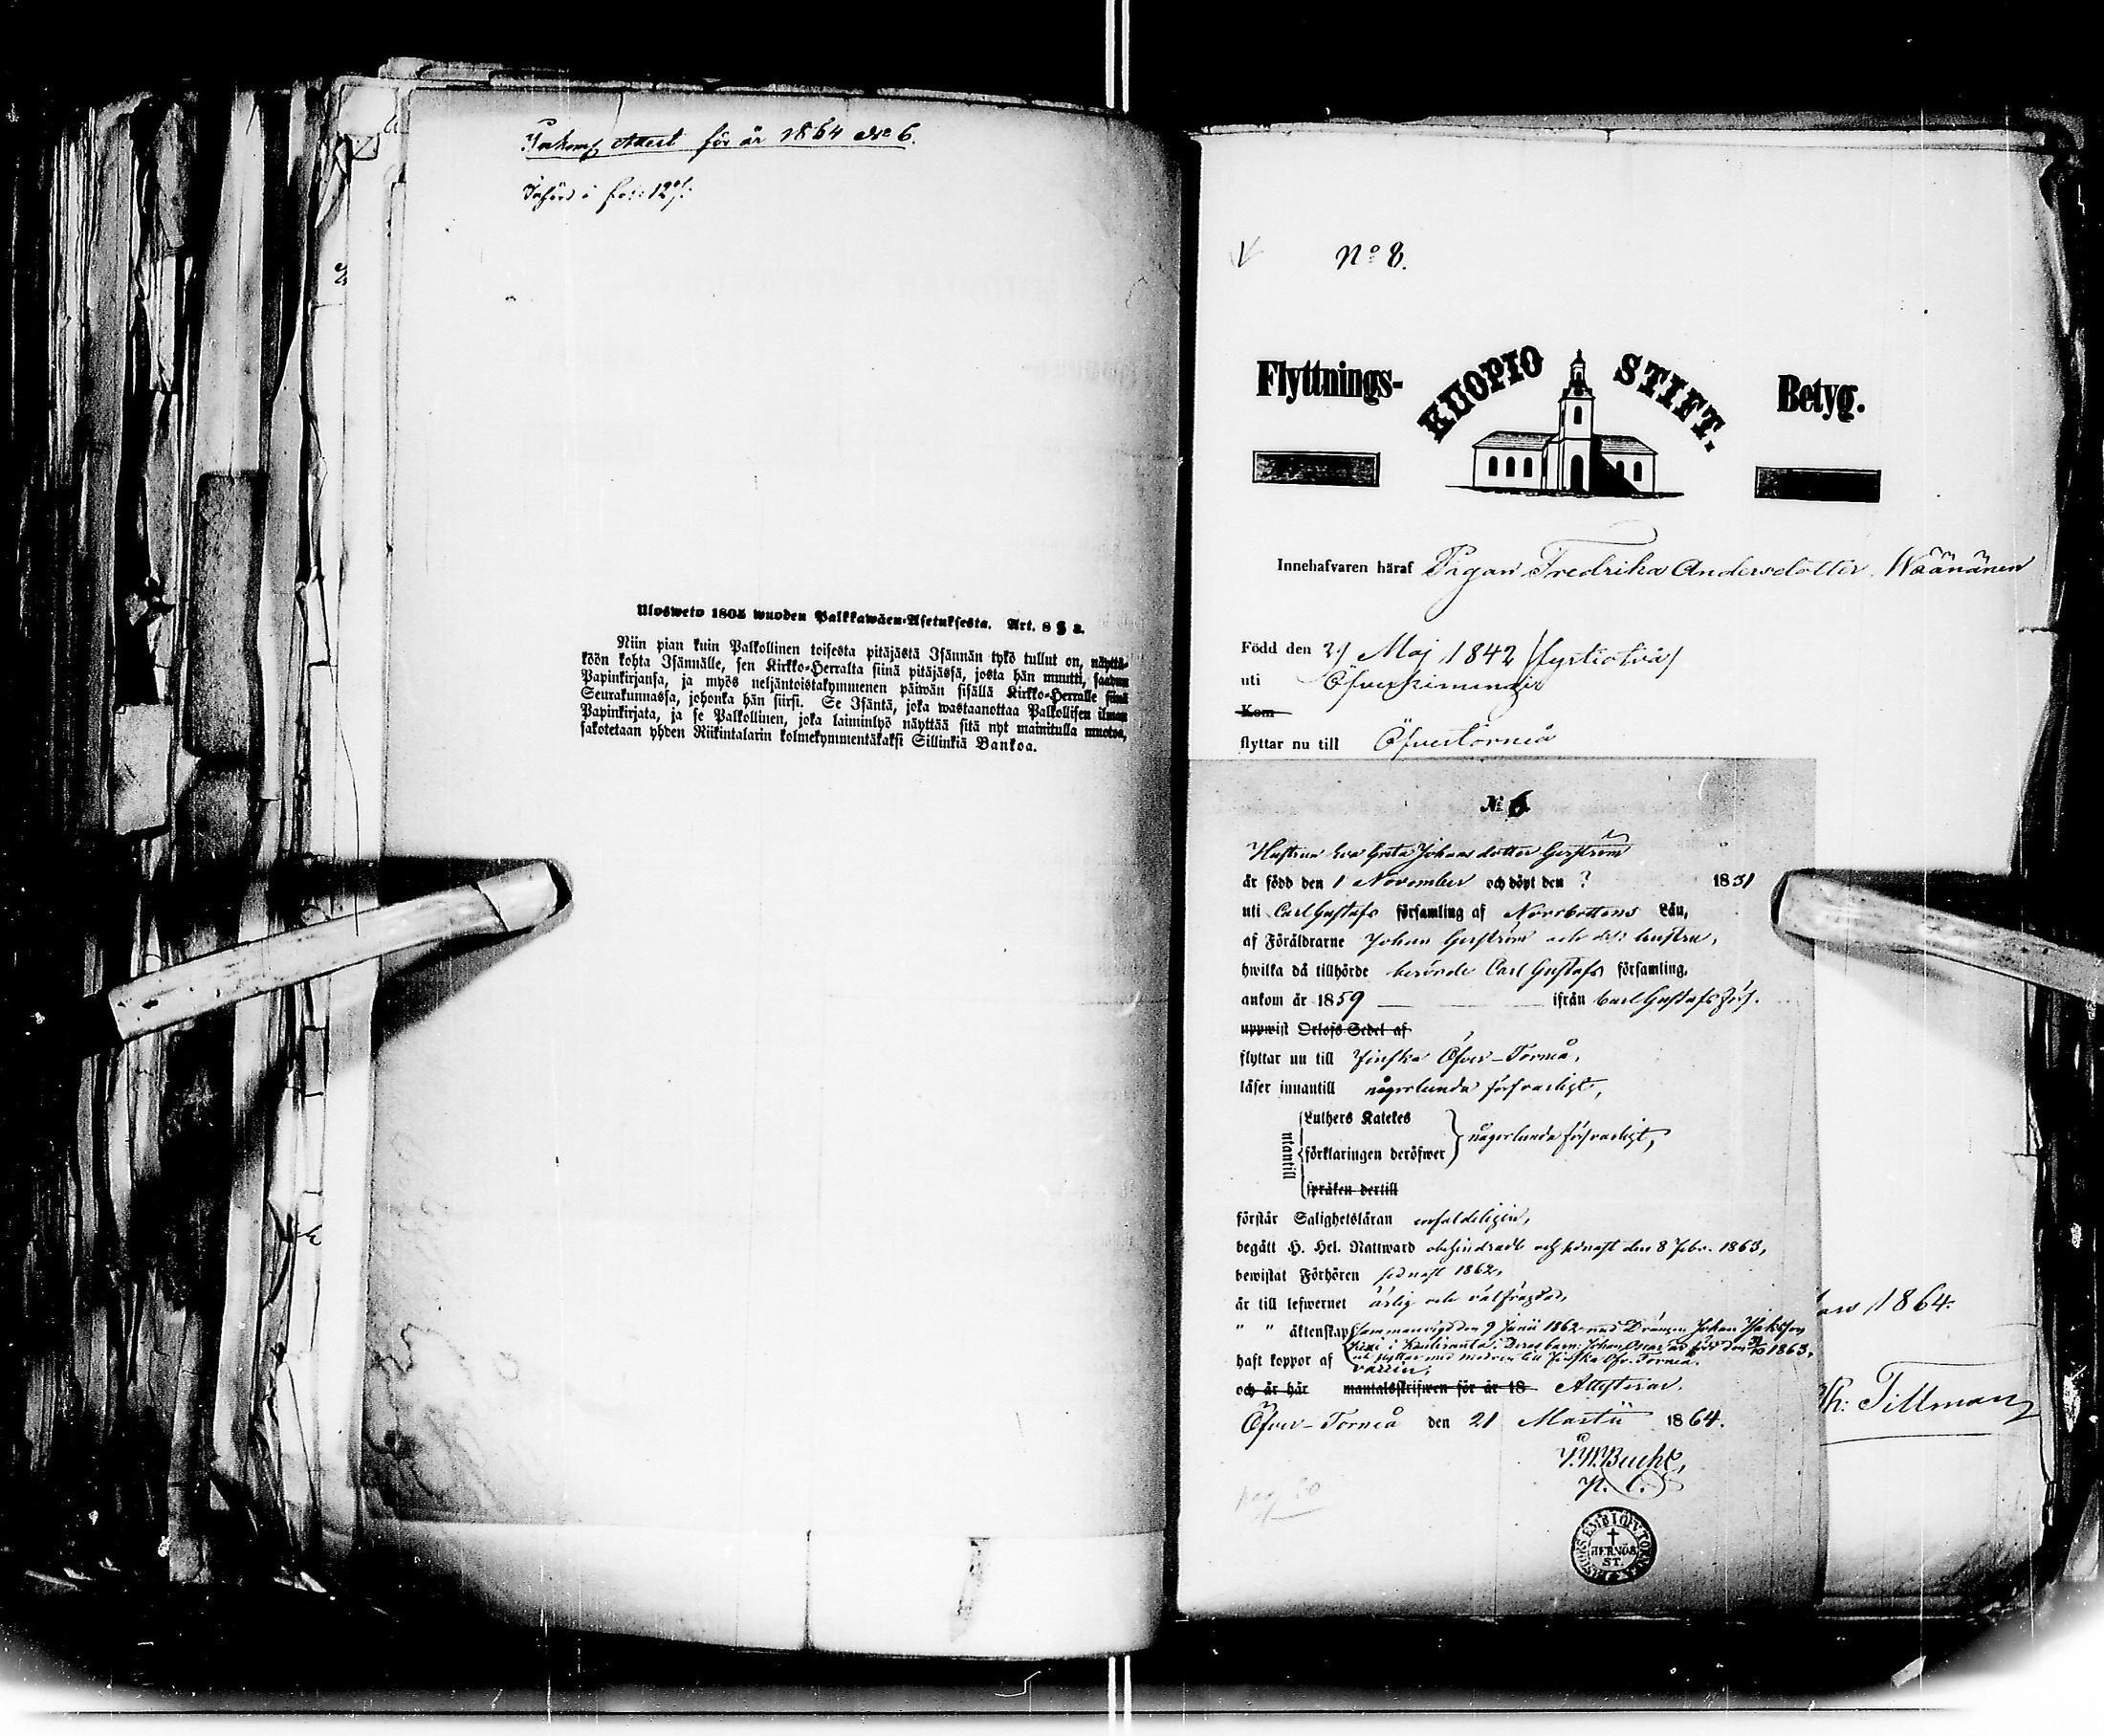 Inkomf Attest för år 1864 No 6.
Införd i fol: 129.
Ulosweto 1805 wuoden Palkkawäen-Asetuksesta. Art. 8 § 2.
Niin pian kuin Palkollinen toisesta pitäjästä Isännän tykö tullut on, näyttä-
köön kohta Isännälle, sen Kirkko-Herralta siinä pitäjässä, josta hän muutti, saadun
Papinkirjansa, ja myös neljäntoistakymmenen päiwän sisällä Kirkko-Herralle siinä
Seurakunnassa, johonka hän siirsi. Se Isäntä, joka wastaanottaa Palkollisen ilman
Papinkirjata, ja se Palkollinen, joka laiminlyö näyttää sitä nyt mainitulla muotoa,
sakotetaan yhden Riikintalarin kolmekymmentäkaksi Sillinkiä Bankoa.
No 8.
Flyttnings- KUOPIO STIFT. Betyg.
Innehafvaren häraf Pigan Fredrika Andersdotter Wäänänen
Född den 29 Maj 1842 /fyrtiotvå/
uti Öfverkiminge
Kom
flyttar nu till Öfvertorneå
No 6.
Hustrun Eva Greta Johansdotter Gerström
är född den 1 November och döpt den ? 1831
uti Carl Gustafs församling af Norrbottens Län,
af Föräldrarne Johan Gerström och des: hustru,
hwilka då tillhörde berörde Carl Gustafs församling,
ankom år 1859 ifrån Carl Gustafs förs.
uppwist Orlofs Sedel af
flyttar nu till Finska Öfver-Torneå,
läser innantill någorlunda försvarligt,
utantill
Luthers Katekes
förklaringen deröfwer
någorlunda försvarligt,
språken dertill
förstår Salighetsläran enfaldeligen,
begått H. Hel. Nattward obehindradt och senast den 8 Febr. 1863,
bewistat Förhören senast 1862,
är till lefwernet ärlig och välfrägdad,
" " äktenskap sammanvigd den 9 Junii 1862 med Drängen Johan Isaksson
i Kaulinranta. Deras barn: Johan Oscar är född den 1863,
och flyttar med modren till Finska Öfv. Torneå.
haft koppor af vaccin,
och är här mantalsskrifwen för år 18 Attesterar.
Öfver-Torneå den 21 Martii 1864.
P. W. Bucht,
1864.
Th: Tillman
HERNÖS. ST.